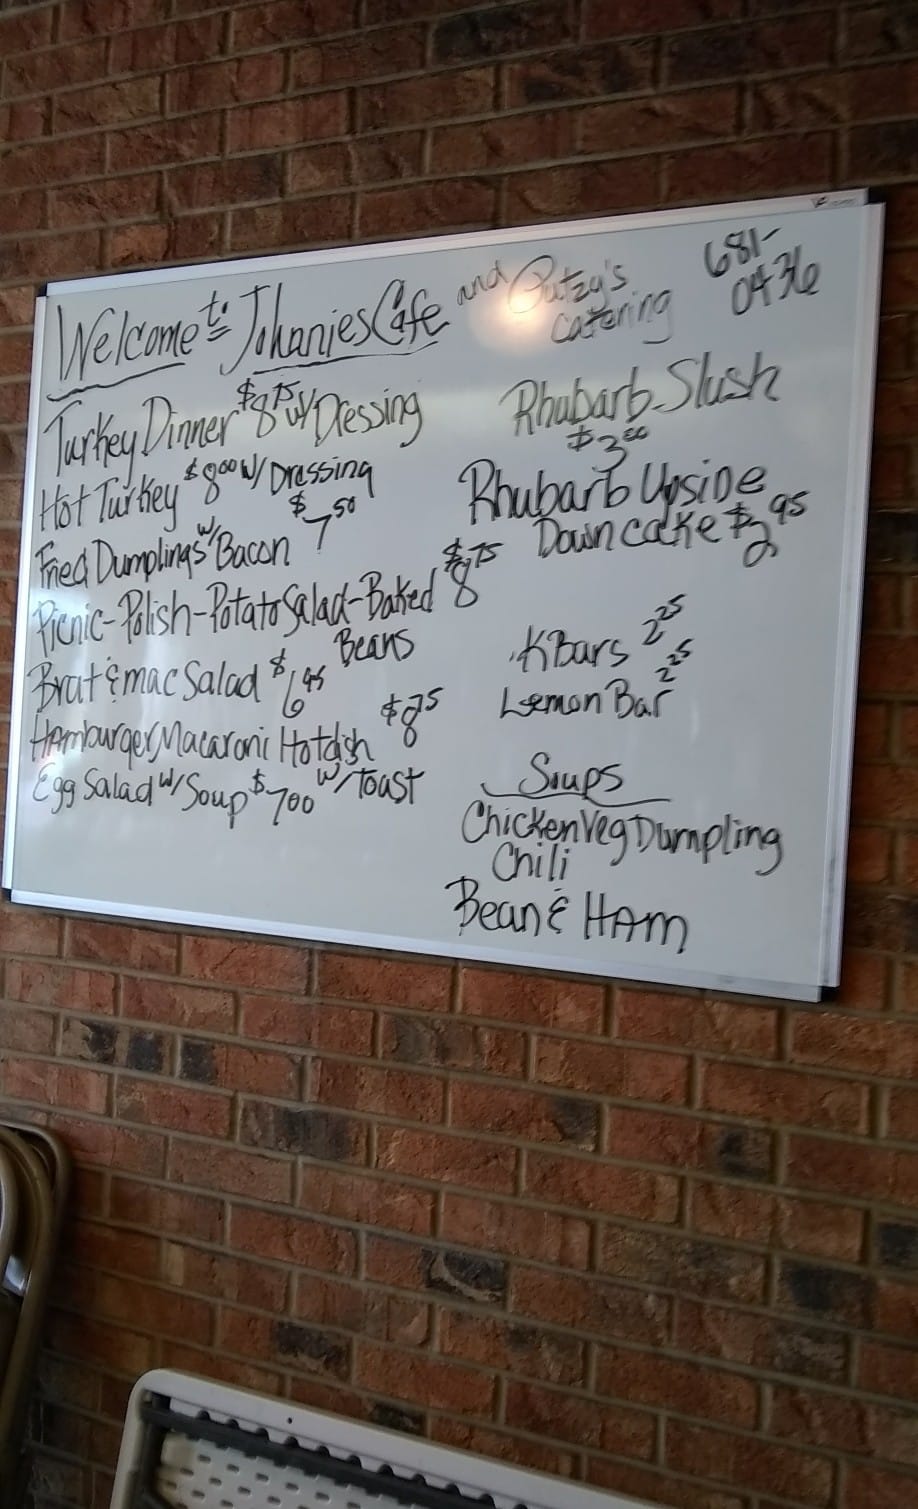 Welcome to Johnnies Cafe and Putzy's catering 681-0436
Turkey Dinner $8.75 w/ Dressing
Hot Turkey $8.00 w/ Dressing
Fried Dumplings w/ Bacon $7.50
Picnic-Polish-Potato Salad-Baked Beans $8.75
Brat & mac Salad $6.95
Hamburger Macaroni Hotdish $8.25 w/ Toast
Egg Salad w/ Soup $7.00
Rhubarb Slush
$3.00
Rhubarb Upside
Down cake $2.95
K Bars 2.25
Lemon Bar 2.25
Soups
Chicken Veg Dumpling
Chili
Bean & Ham